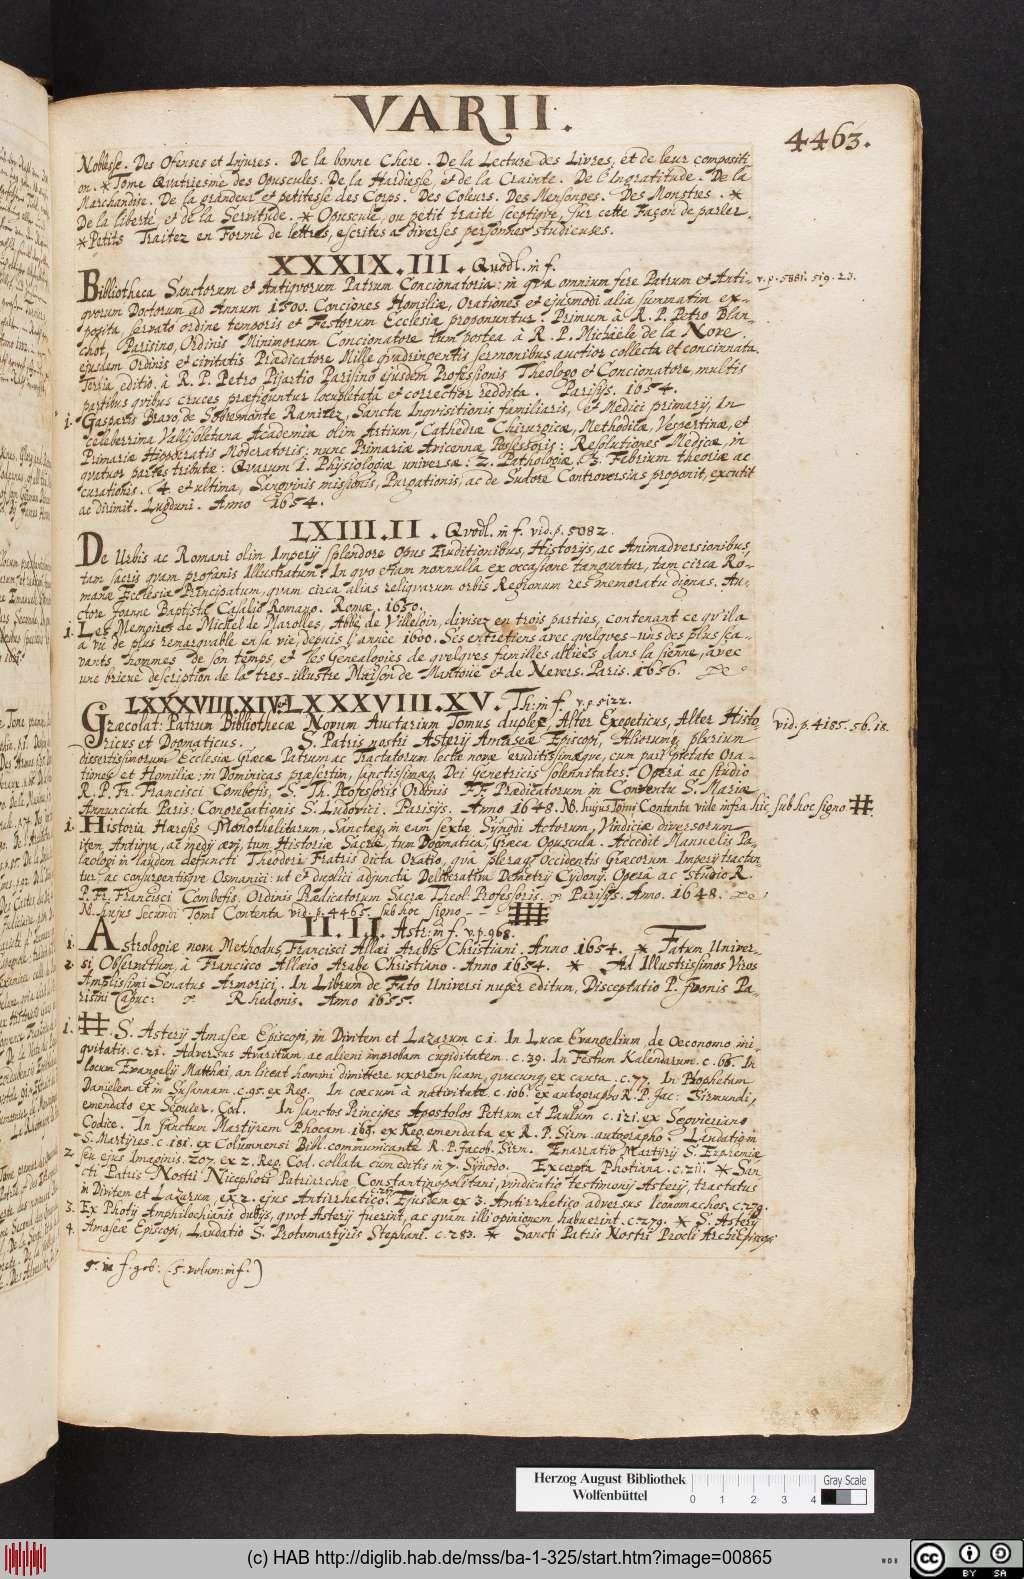 VARII.
4463.
Noblesse. Des Ofenses et Injures. De la bonne Chere. De la Lecture des Livres, et de leur compositi
on. * Tome Quatriesme des Opuscules. De la Hardiesse, et de la Crainte. De l'Ingratitude. De la
Marchandise. De la grandeur et petitesse des Corps. Des Coleurs. Des Mensonges. Des Monstres. *
De la liberté et de la Servitude. * Opuscule, ou petit traité sceptique, sur cette Façon de parler.
* Petits Traitez en Forme de lettres, escrites a diverses personnes studieuses.
XXXIX.III. Quodl. in f.
Bibliotheca Sanctorum et Antiquorum Patrum Concionatoria: in qua omnium fere Patrum et Anti- v.p. 5881. sig. 23.
quorum Doctorum ad Annum 1500. Conciones Homiliæ, Orationes et ejusmodi alia summatim ex-
posita servato ordine temporis et Festorum Ecclesiæ proponuntur. Primum à R. P. Petro Blan-
chot, Parisino, Ordinis Minimorum Concionatore tum postea à R. P. Michaele de la Nove
ejusdem Ordinis et civitatis Prædicatore Mille quadringentis sermonibus auctior collecta et concinnata.
Tertia editio à R. P. Petro Pijartio Parisino ejusdem Professionis Theologo et Concionatore, multis
partibus quibus cruces præfiguntur locupletata et correctior reddita. Parisijs. 1654.
1. Gasparis Bravo, de Sobremonte Ramirez, Sanctæ Inquisitionis familiaris, et Medici primarij, In
celeberrima Vallisoletana Academia olim Artium, Cathedræ Chirurgicæ, Methodicæ, Vespertinæ, et
Primariæ Hippocratis Moderatoris: nunc Primariæ Avicennæ Possessoris: Resolutiones Medicæ, in
quatuor partes tributæ: Quarum 1. Physiologiæ universæ: 2. Pathologiæ, 3. Febrium theoriæ ac
curationis. 4 et ultima, Sanguinis missionis, Purgationis, ac de Sudore Controversias proponit, excutit
ac dirimit. Lugduni. Anno 1654.
LXIII.II. Quodl. in f. vid. p. 5082.
De Urbis ac Romani olim Imperij splendore Opus Eruditionibus, Historijs, ac Animadversionibus,
tam sacris quam profanis Illustratum. In quo etiam nonnulla ex occasione tanguntur, tam circa Ro-
manæ Ecclesiæ Principatum, quam circa alias reliquarum orbis Regionum res memoratu dignas. Au-
ctore Joanne Baptista Casalio Romano. Romæ. 1650.
1. Les Memoires de Michel de Marolles, Abbé de Villeloin, divisez en trois parties, contenant ce qu'il a
a vu de plus remarquable en sa vie, depuis l'année 1600. Ses entretiens avec quelques-uns des plus sca-
vants hommes de son temps, et les Genealogies de quelques familles alliées dans la sienne, avec
une brieve description de la tres-illustre Maison de Mantoue et de Nevers. Paris. 1656.
LXXXVIII.XIV et LXXXVIII.XV. Th: in f. v.p. 5122.
Græcolat: Patrum Bibliothecæ Novum Auctarium Tomus duplex, Alter Exegeticus, Alter Histo- vid. p. 4185. 56. 18.
ricus et Dogmaticus. S. Patris nostri Asterij Amaseæ Episcopi, Aliorumq, plurium
dissertissimorum Ecclesiæ Græcæ Patrum ac Tractatorum lectæ novæ eruditissimæque, cum pari pietate Ora-
tiones et Homiliæ: in Dominicas præsertim, sanctissimæq, Dei Genetricis solennitates. Opera ac studio
R. P. Fr. Francisci Combefis, S. Th. Professoris Ordinis FF. Prædicatorum in Conventu S. Mariæ
Annunciatæ Paris: Congregationis S. Ludovici. Parisijs. Anno 1648. NB. hujus Tomi Contenta vide infra hic, sub hoc signo #.
1. Historia Hæresis Monothelitarum, Sanctæq, in eam sextæ Synodi Actorum, Vindiciæ diversorum
item Antiqua, ac medij ævi, tum Historiæ Sacræ, tum Dogmatica, Græca Opuscula. Accedit Manuelis Pa-
læologi in laudem defuncti Theodori Fratris dicta Oratio, qua pleraq, Occidentis Græcorum Imperij tractan-
tur, ac consurgentisque Osmanici: ut et duplici adjuncta Deliberativa Demetrij Cydonij. Opera ac studio R.
P. Fr. Francisci Combefis, Ordinis Prædicatorum Sacræ Theol. Professoris. Parisijs. Anno. 1648.
N. hujus secundi Tomi Contenta vid. p. 4465. sub hoc signo
II.II. Astr: in f. v.p. 968.
1. Astrologiæ nova Methodus Francisci Allæi Arabis Christiani. Anno 1654. * Fatum Univer-
2. si Observatum, à Francisco Allæio Arabe Christiano. Anno 1654. * Ad Illustrissimos Viros
Amplissimi Senatus Armorici. In Librum de Fato Universi nuper editum, Disceptatio P. Ivonis Pa-
risini Capuc: Rhedonis. Anno 1655.
1. #. S. Asterij Amaseæ Episcopi, in Divitem et Lazarum c. 1. In Lucæ Evangelium, de Oeconomo ini-
quitatis. c. 21. Adversus Avaritiam, ac alieni improbam cupiditatem. c. 39. In Festum Kalendarum. c. 66. In
locum Evangelij Matthæi, an liceat homini dimittere uxorem suam, quacunq, ex causa. c. 77. In Prophetam
Danielem et in Susannam. c. 95. ex Reg. In cæcum à nativitate. c. 106. ex autographo R. P. Jac: Sirmundi,
emendato ex Seguier. Cod. In sanctos Principes Apostolos Petrum et Paulum c. 121. ex Seguieriano
Codice. In sanctum Martyrem Phocam. 169. ex Reg. emendata ex R. P. Sirm. autographo. Laudatio in
S. Martyres. c. 181. ex Columnensi Bibl. communicante R. P. Jacob. Sirm. Enarratio Martyrij S. Euphemiæ
2. seu ejus Imaginis. 207. ex 2. Reg. Cod. collata cum editis in 7. Synodo. Excerpta Photiana. c. 211. * San-
cti Patris Nostri Nicephori Patriarchæ Constantinopolitani, vindicatio testimonij Asterij, tractatus
in Divitem et Lazarum, ex 2. ejus Antirrhetico. Ejusdem ex 3. Antirrhetico adversus Iconomachos. c. 279.
3. Ex Photij Amphilochianis dubijs, quot Asterij fuerint, ac quam illi opinionem habuerint. c. 279. * S. Asterij
4. Amaseæ Episcopi, Laudatio S. Protomartyris Stephani. c. 283. * Sancti Patris Nostri Procli Archiepiscopi
Herzog August Bibliothek
Wolfenbüttel
Gray Scale
0 1 2 3 4
(c) HAB http://diglib.hab.de/mss/ba-1-325/start.htm?image=00865
WDB
cc BY SA